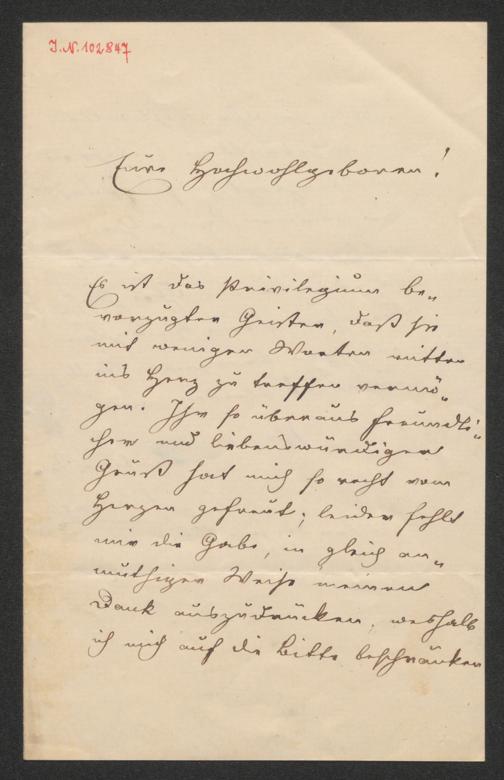 I.N. 102847
Eure Hochwohlgeboren!
Es ist das Privilegium be„
vorzugter Geister, daß sie
mit wenigen Worten mitten
ins Herz zu treffen vermö„
gen. Ihr so überaus freundli„
cher und liebenswürdiger
Gruß hat mich so recht vom
Herzen gefreut; leider fehlt
mir die Gabe, in gleich an„
muthiger Weise meinen
Dank auszudrücken, weshalb
ich mich auf die Bitte beschränken